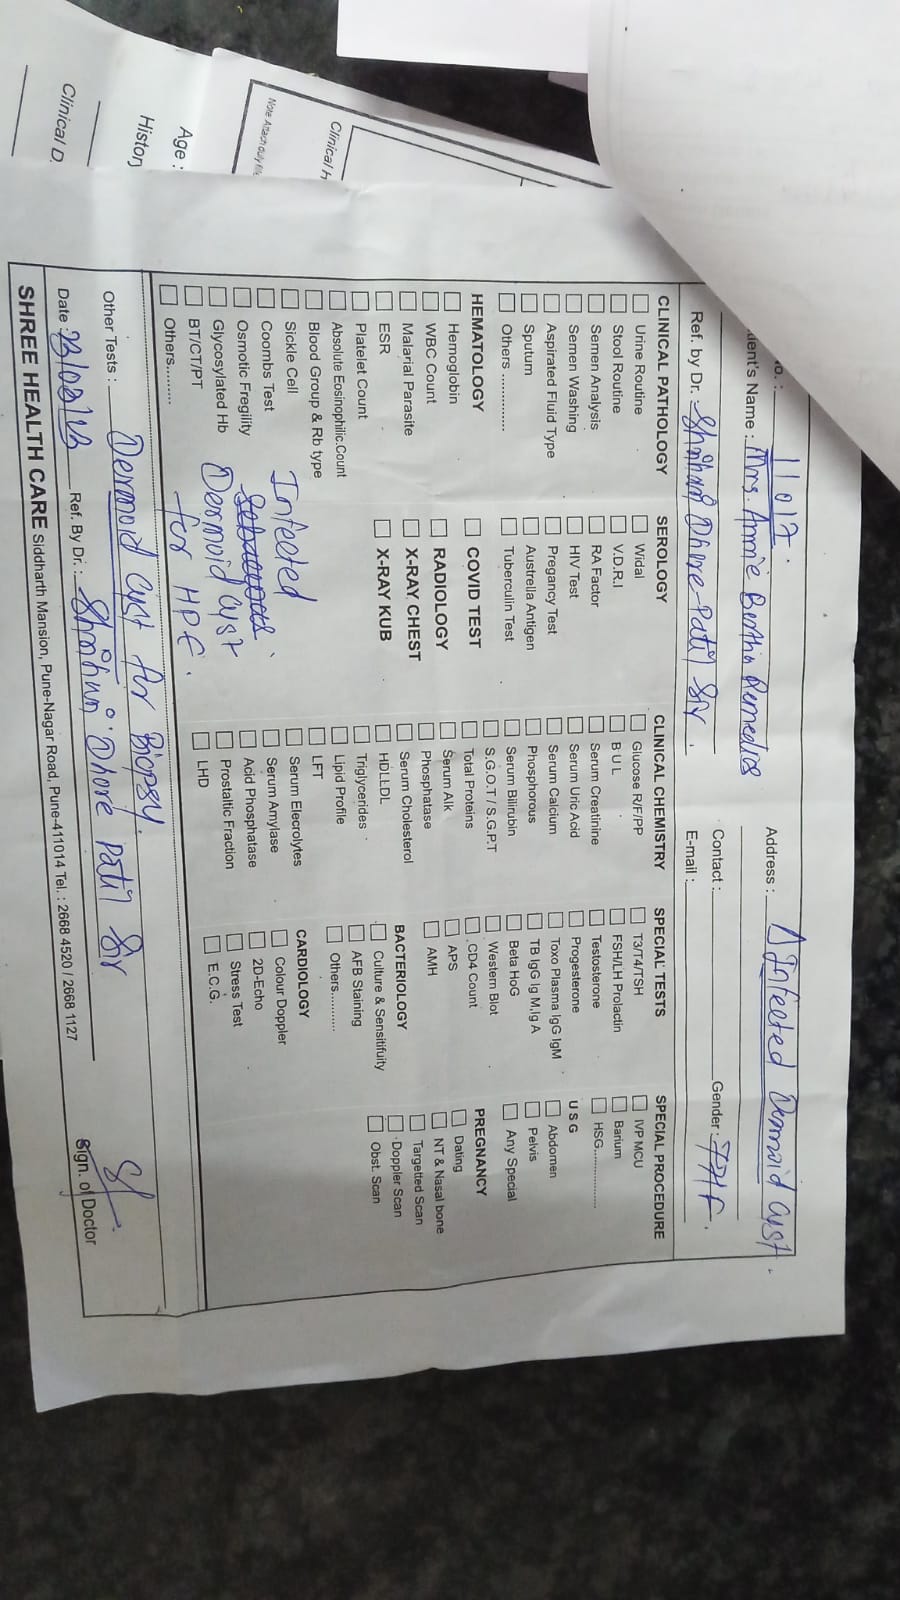 o. : 11017.
ient's Name : Mrs. Annie Berthin Remedios
Address : Δ Infected Dermoid cyst.
Ref. by Dr. Dhore-Patil Sir.
Contact :
Gender : 77/F.
E-mail :
CLINICAL PATHOLOGY
Urine Routine
Stool Routine
Semen Analysis
Semen Washing
Aspirated Fluid Type
Sputum
Others ............
HEMATOLOGY
Hemoglobin
WBC Count
Malarial Parasite
ESR
Platelet Count
Absolute Eosinophilic.Count
Blood Group & Rb type
Sickle Cell
Coombs Test
Osmotic Fregility
Glycosylated Hb
BT/CT/PT
Others.........
SEROLOGY
Widal
V.D.R.I
RA Factor
HIV Test
Pregancy Test
Austrella Antigen
Tuberculin Test
COVID TEST
RADIOLOGY
X-RAY CHEST
X-RAY KUB
Infected
Dermoid cyst
for HPE.
CLINICAL CHEMISTRY
Glucose R/F/PP
B U L
Serum Creatinine
Serum Uric Acid
Serum Calcium
Phosphorous
Serum Bilirubin
S.G.O.T / S.G.P.T
Total Proteins
Serum Alk
Phosphatase
Serum Cholesterol
HDLLDL
Triglycerides
Lipid Profile
LFT
Serum Elecrolytes
Serum Amylase
Acid Phosphatase
Prostaltic Fraction
LHD
SPECIAL TESTS
T3/T4/TSH
FSH/LH Prolactin
Testosterone
Progesterone
Toxo Plasma IgG IgM
TB IgG Ig M,Ig A
Beta HoG
Western Blot
CD4 Count
APS
AMH
BACTERIOLOGY
Culture & Sensitifuity
AFB Staining
Others.........
CARDIOLOGY
Colour Doppler
2D-Echo
Stress Test
E.C.G.
SPECIAL PROCEDURE
IVP MCU
Barium
HSG............
U S G
Abdomen
Pelvis
Any Special
PREGNANCY
Dating
NT & Nasal bone
Targetted Scan
Doppler Scan
Obst. Scan
Other Tests : Dermoid cyst for Biopsy.
Date : Ref. By Dr. : Dhore Patil Sir
Sign. of Doctor
SHREE HEALTH CARE Siddharth Mansion, Pune-Nagar Road, Pune-411014 Tel. : 2668 4520 / 2668 1127
Clinical H
Note Attach duly fil
Age :
History
Clinical D.